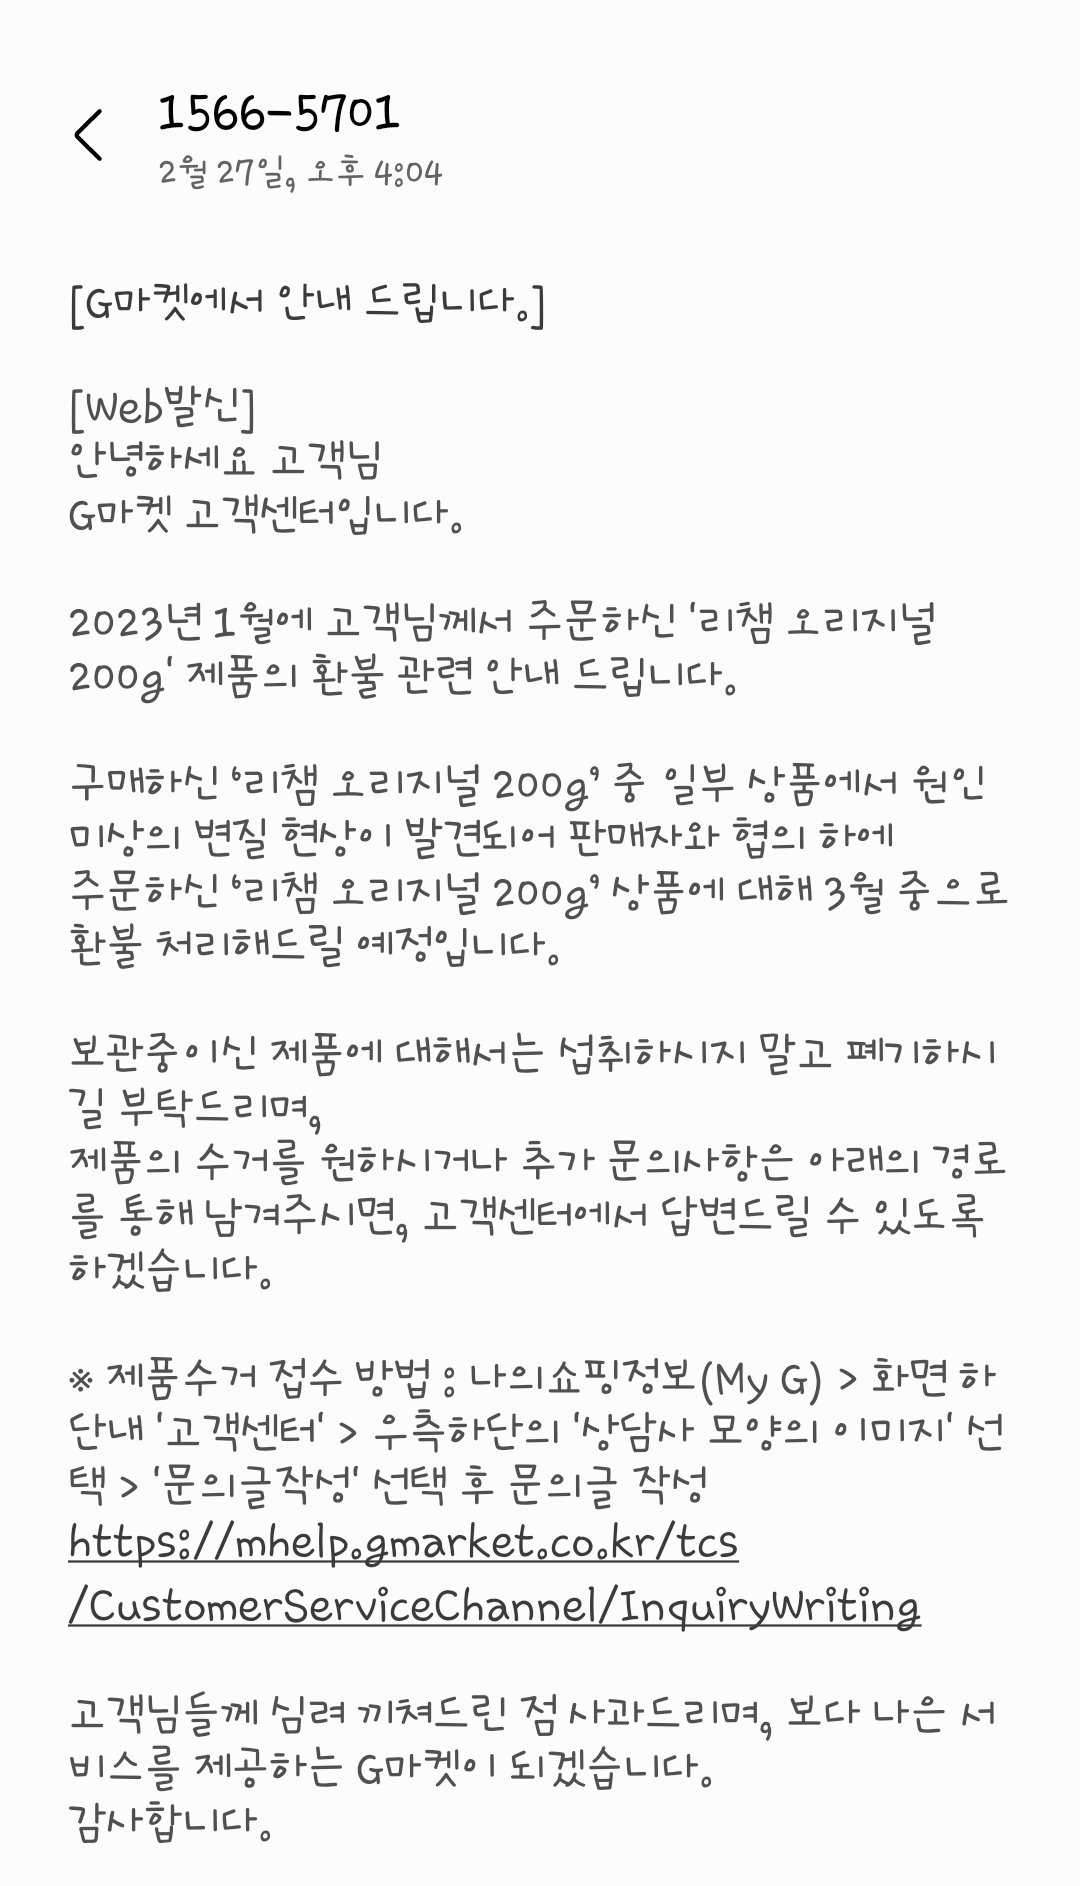 1566-5701
2월 27일, 오후 4:04
[G마켓에서 안내 드립니다.]
[Web발신]
안녕하세요 고객님
G마켓 고객센터입니다.
2023년 1월에 고객님께서 주문하신 '리챔 오리지널
200g' 제품의 환불 관련 안내 드립니다.
구매하신 ‘리챔 오리지널 200g’ 중 일부 상품에서 원인
미상의 변질 현상이 발견되어 판매자와 협의 하에
주문하신 ‘리챔 오리지널 200g’ 상품에 대해 3월 중으로
환불 처리해드릴 예정입니다.
보관중이신 제품에 대해서는 섭취하시지 말고 폐기하시
길 부탁드리며,
제품의 수거를 원하시거나 추가 문의사항은 아래의 경로
를 통해 남겨주시면, 고객센터에서 답변드릴 수 있도록
하겠습니다.
※ 제품수거 접수 방법 : 나의쇼핑정보(My G) > 화면 하
단내 '고객센터' > 우측하단의 '상담사 모양의 이미지' 선
택 > '문의글작성' 선택 후 문의글 작성
https://mhelp.gmarket.co.kr/tcs
/CustomerServiceChannel/InquiryWriting
고객님들께 심려 끼쳐드린 점 사과드리며, 보다 나은 서
비스를 제공하는 G마켓이 되겠습니다.
감사합니다.